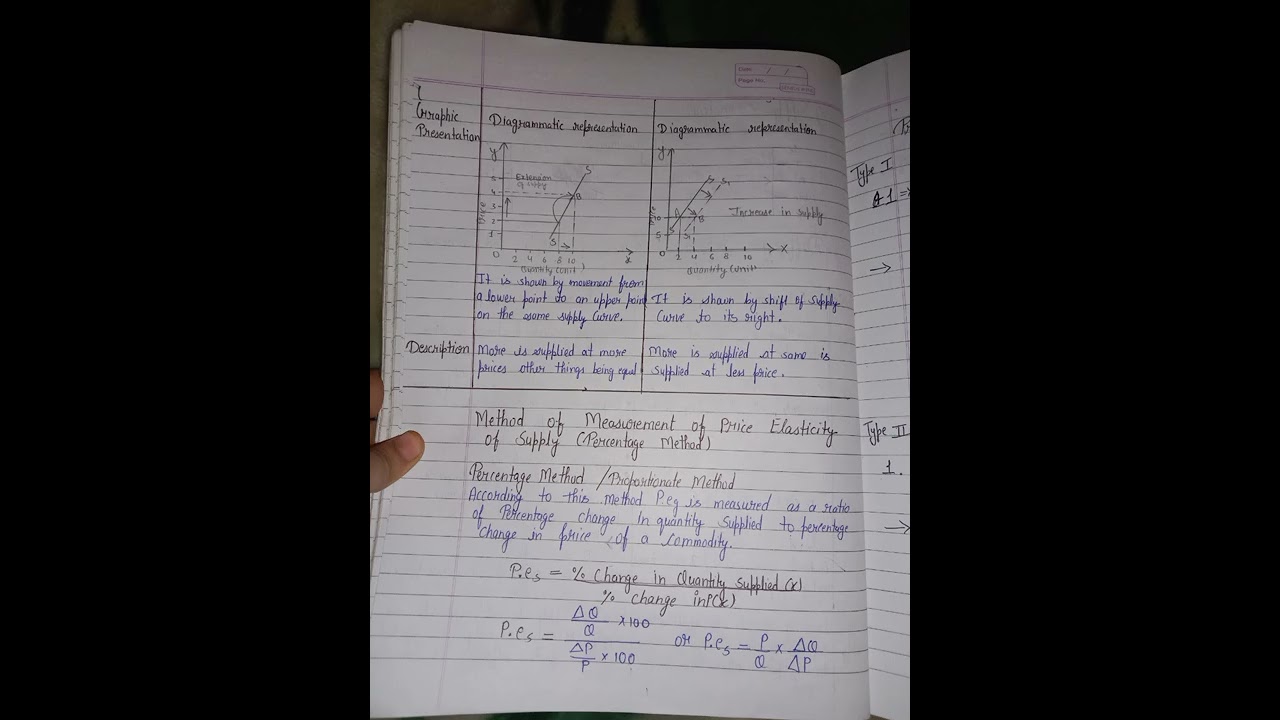 Date: / /
Page No.
Graphic
Presentation
Diagrammatic representation
y
S
Extension
of supply
5
4
B
3
2
1
Price
S
0 2 4 6 8 10
x
Quantity (unit)
It is shown by movement from
a lower point to an upper point
on the same supply curve.
Diagrammatic representation
y
S
S1
A
B
Increase in supply
10
5
S
S1
0 2 4 6 8 10
X
Quantity (unit
It is shawn by shift of supply
Curve to its right.
Description
More is supplied at more
prices other things being equal
More is supplied at same is
Supplied at less price.
Method of Measurement of Price Elasticity
of Supply (Percentage Method)
Percentage Method / Proportionate Method
According to this method P.es is measured as a ratio
of Percentage change in quantity Supplied to percentage
change in price of a Commodity.
P.es = % Change in Quantity Supplied (x)
% change in P(x)
P.es = ΔQ/Q × 100
ΔP/P × 100
or P.es = P/Q × ΔQ/ΔP
Type I
Q1 ⇒
→
Type II
1.
→